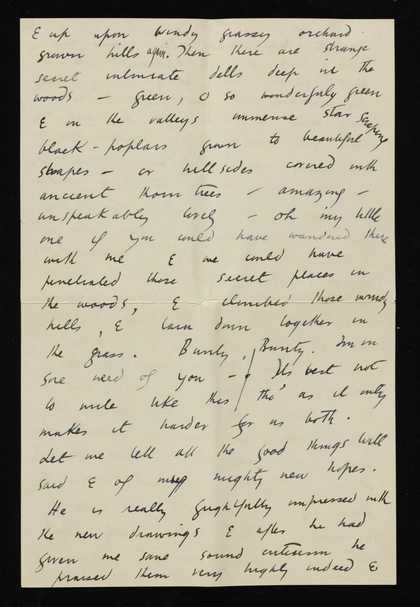 & up upon windy grassy orchard
grown hills again. Then there are strange
secret intimate dells deep in the
woods — green, O so wonderfully green
& in the valleys immense star scaping
black-poplars grown to beautiful
shapes — or hillsides covered with
ancient thorn trees — amazing —
unspeakably lovely — oh my little
one if you could have wandered there
with me & we could have
penetrated those secret places in
the woods, & climbed those windy
hills, & lain down together in
the grass. Bunty, Bunty. I'm in
sore need of you — It's best not
to write like this tho' as it only
makes it harder for us both.
Let me tell all the good things Will
said & of my mighty new hopes.
He is really frightfully impressed with
the new drawings & after he had
given me some sound criticism he
praised them very highly indeed &